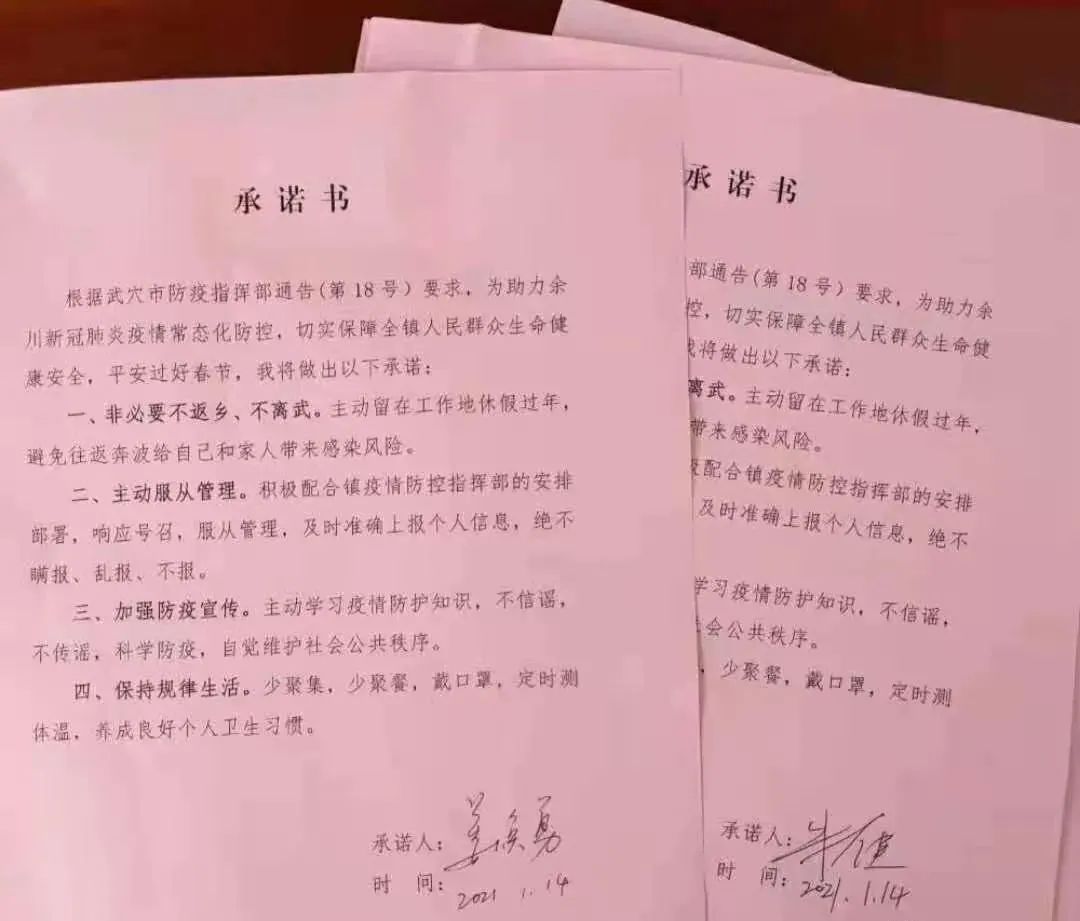 承诺书
根据武穴市防疫指挥部通告(第18号)要求，为助力余
川新冠肺炎疫情常态化防控，切实保障全镇人民群众生命健
康安全，平安过好春节，我将做出以下承诺：
一、非必要不返乡、不离武。主动留在工作地休假过年，
避免往返奔波给自己和家人带来感染风险。
二、主动服从管理。积极配合镇疫情防控指挥部的安排
部署，响应号召，服从管理，及时准确上报个人信息，绝不
瞒报、乱报、不报。
三、加强防疫宣传。主动学习疫情防护知识，不信谣，
不传谣，科学防疫，自觉维护社会公共秩序。
四、保持规律生活。少聚集，少聚餐，戴口罩，定时测
体温，养成良好个人卫生习惯。
承诺人：姜焕勇
时 间：2021 1.14
承诺书
部通告(第18号)要求，为助力余
控，切实保障全镇人民群众生命健
我将做出以下承诺：
离武。主动留在工作地休假过年，
带来感染风险。
极配合镇疫情防控指挥部的安排
，及时准确上报个人信息，绝不
学习疫情防护知识，不信谣，
社会公共秩序。
，少聚餐，戴口罩，定时测
承诺人：
时 间：2021.1.14